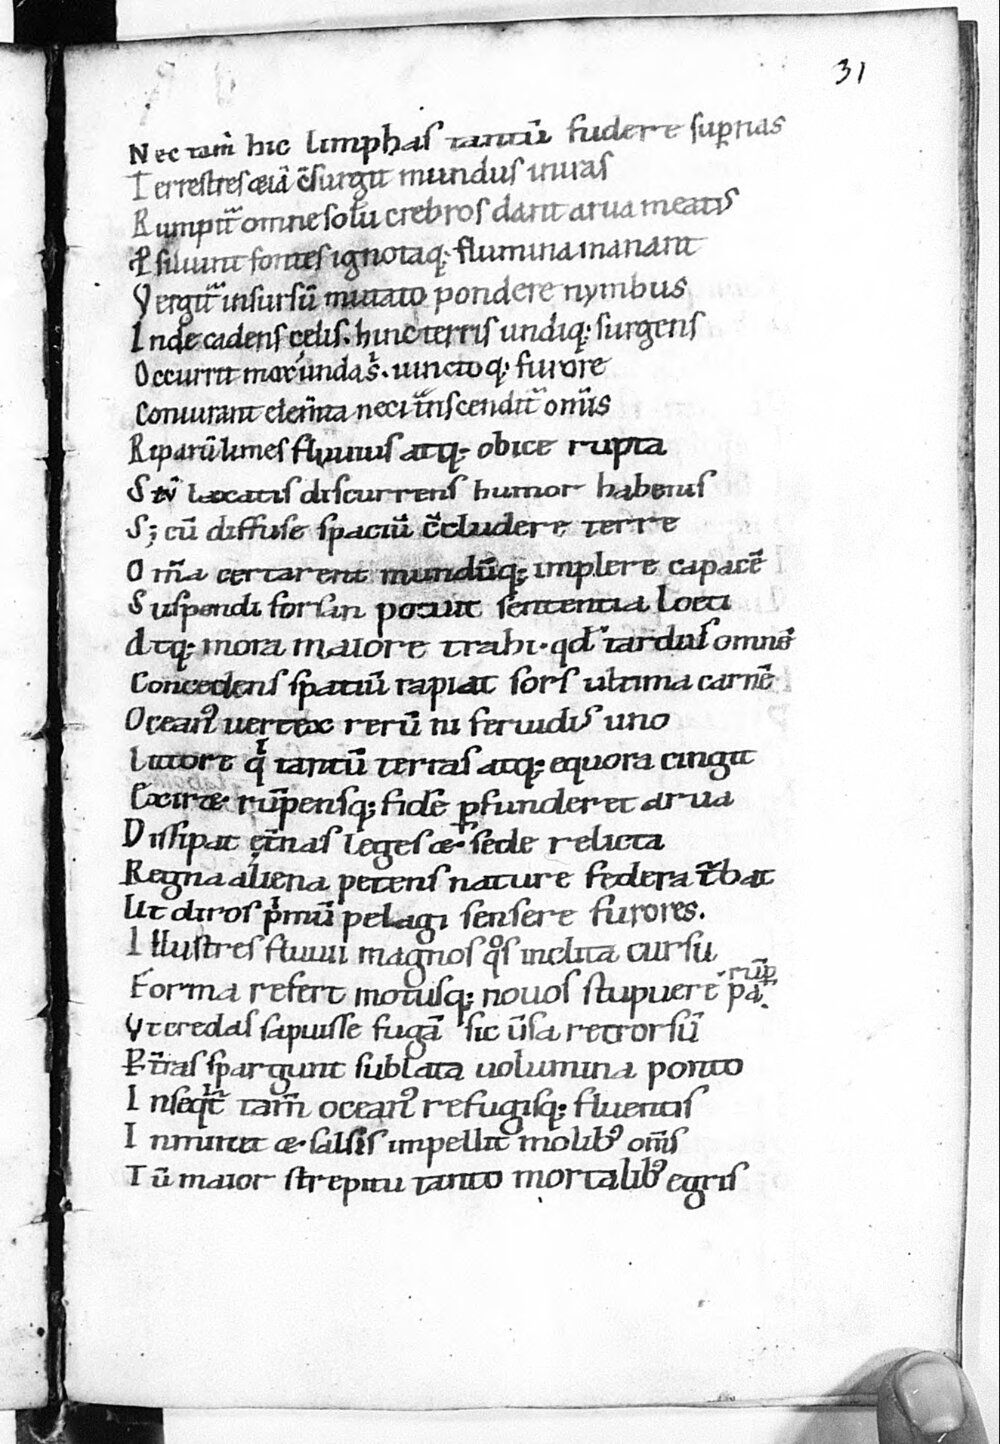 31
Nec tam̄ hic limphas tantū fudere sup̄nas
Terrestres &iā c̄surgit mundus in iras
Rumpit̄ omne solū crebros dant arua meatus
Ꝓsiliunt fontes ignotaq; flumina manant
Vergit̄ in sursū mutato pondere nymbus
Inde cadens cęlis. hinc terris undiq; surgens
Occurrit mox undas. uinctoq; furore
Coniurant elem̄ta neci t̄nscendit̄ om̄is
Riparū limes fluuius atq; obice rupta
laxatis discurrens humor habenis
S; cū diffuse spaciū c̄cludere terre
Om̄a certarent mundūq; implere capacē
Suspendi forsan potuit sententia loeti
Atq; mora maiore trahi. qđ tardus omnē
Concedens spatiū rapiat sors ultima carnē
Oceanꝰ uertex rerū ni feruidus uno
Littore q̇ tantū terras atq; equora cingit
Exire & rūpensq; fidē ꝑfunderet arua
Dissipat ęt̄nas leges & sede relicta
Regna aliena petens nature federa t̄bat
Ut diros p̄mū pelagi sensere furores.
Illustres fluuii magnos q̊s inclita cursu
Forma refert motusq; nouos stupuere rūp
pa.
Vt credas sapuisse fugā sic ūsa retrorsū
P̱ t̄ras spargunt sublata uolumina ponto
Inseqt̄ tam̄ oceanꝰ refugisq; fluentis
Inminet & salsis impellit molibꝰ om̄s
Tū maior strepitu tanto mortalibꝰ egris